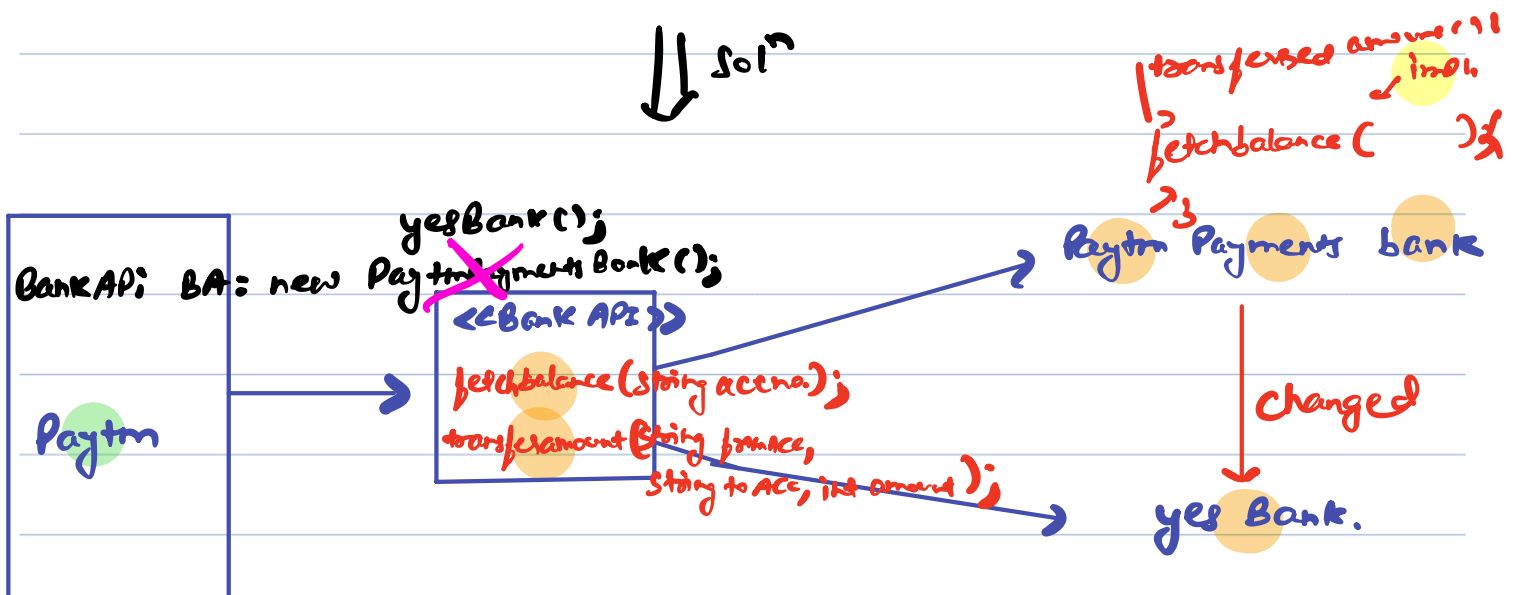 solⁿ
transferred amount()
impl.
}
fetchbalance( ){
}
yesBank();
BankAPi BA = new PaytmPaymentsBank();
<<Bank API>>
fetchbalance(string accno.);
transferamount(string fromAcc,
string to Acc, int amount);
Paytm
Paytm Payments bank
changed
yes Bank.